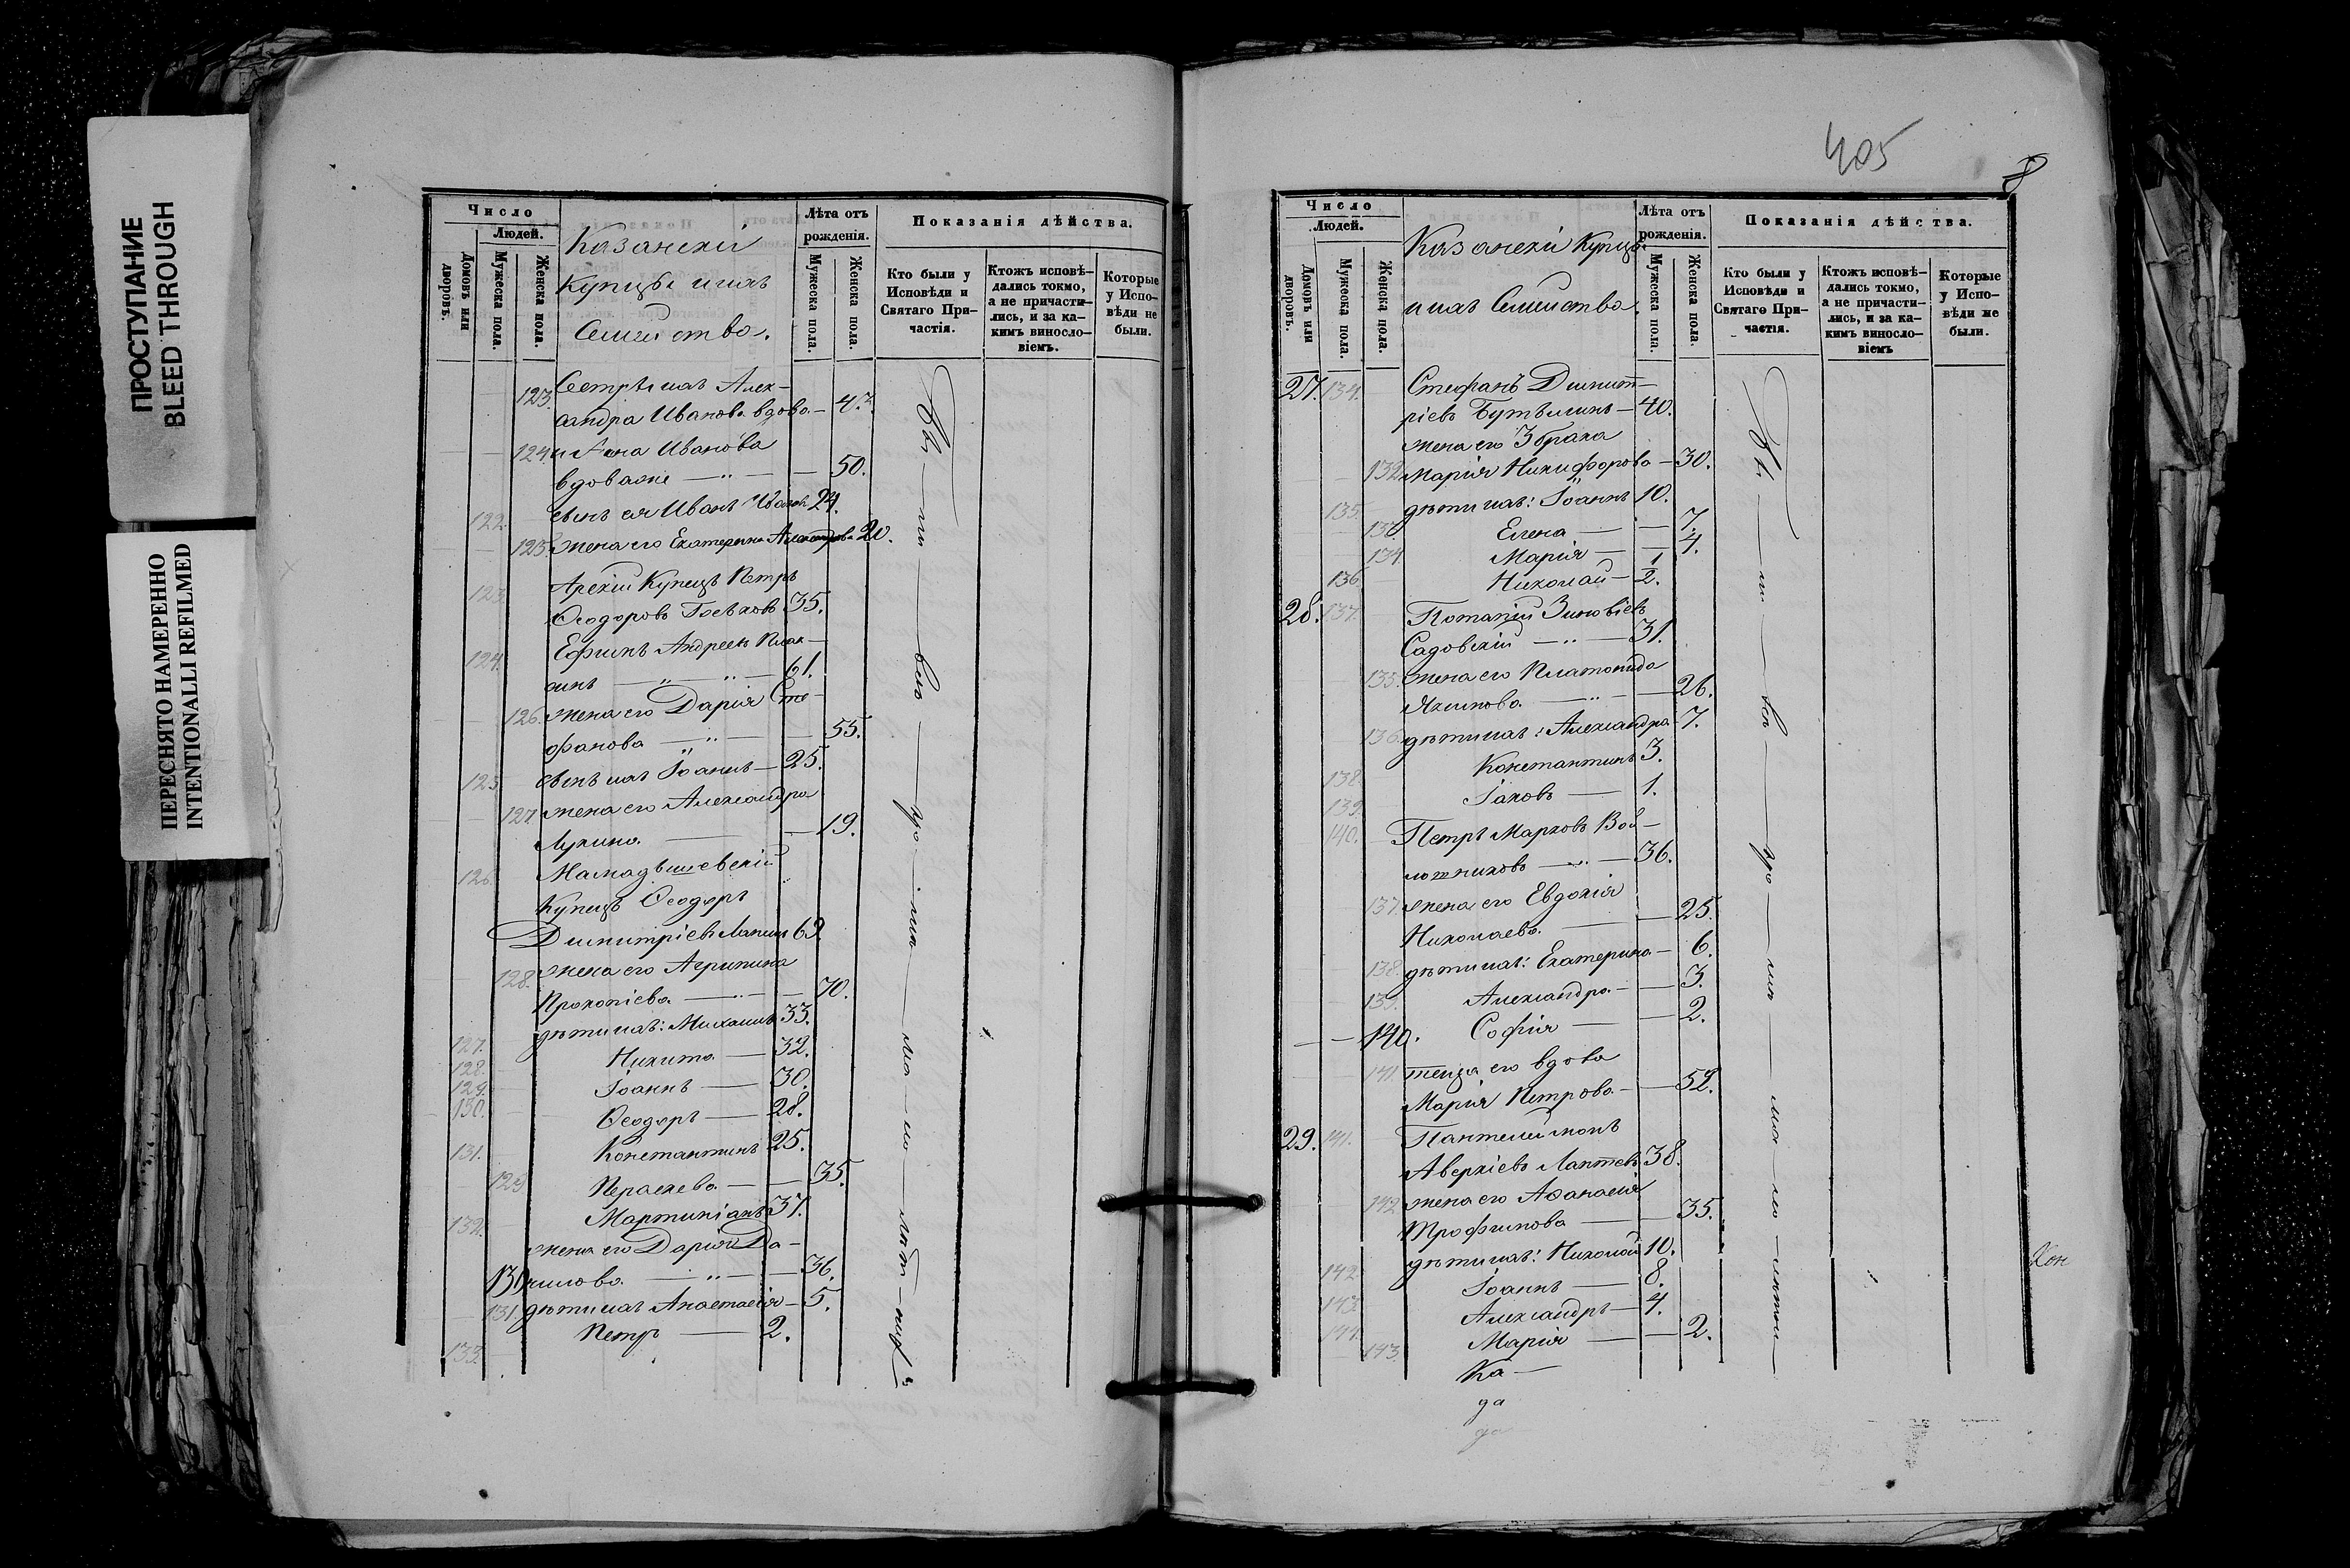 ПРОСТУПАНИЕ
BLEED THROUGH
ПЕРЕСНЯТО НАМЕРЕННО
INTENTIONALLI REFILMED
Число
Людей.
Домовъ или дворовъ.
Мужеска пола.
Женска пола.
Казанскіи
Купцы и ихъ
Семейства.
Лѣта отъ рожденія.
Мужеска пола.
Женска пола.
Показанія дѣйства.
Кто были у Исповѣди и Святаго Причастія.
Ктожъ исповѣ-
дались токмо,
а не причасти-
лись, и за ка-
кимъ виносло-
віемъ.
Которые
у Испо-
вѣди не
были.
123. Сестры ихъ Алек-
сандра Иванова вдова — 47.
124. и Анна Иванова
вдова же — 50.
122. сынъ ея Иванъ 24.
125. жена его Екатерина 20.
123. Арскіи Купецъ Петръ
Ѳеодоровъ 35.
124. Ефимъ Андреевъ
61.
126. жена его Дарія Сте-
фанова — 55.
125. сынъ ихъ Іоаннъ — 25.
127. жена его Александра
Лукина — 19.
126. Мамадышевскій
Купецъ Ѳеодоръ
Димитріевъ Лапинъ 69.
128. жена его Агрипина
Прокопіева — 70.
127. дѣти ихъ: Михаилъ 33.
128. Никита — 32.
129. Іоаннъ — 30.
130. Ѳеодоръ — 28.
131. Константинъ 25.
129. Параскева — 35.
132. Мартиніанъ 37.
жена его Дарія Да-
130. нилова — 36.
131. дѣти ихъ Анастасія — 5.
133. Петръ — 2.
405
8
Число
Людей.
Домовъ или дворовъ.
Мужеска пола.
Женска пола.
Казанскіи Купцы
и ихъ Семейства.
Лѣта отъ рожденія.
Мужеска пола.
Женска пола.
Показанія дѣйства.
Кто были у
Исповѣди и
Святаго При-
частія.
Ктожъ исповѣ-
дались токмо,
а не причасти-
лись, и за ка-
кимъ виносло-
віемъ
Которые
у Испо-
вѣди не
были.
27. 134. Стефанъ Димит-
ріевъ — 40.
жена его 3 брака
132. Марія Никифорова — 30.
135. дѣти ихъ: Іоаннъ 10.
133. Елена — 7.
134. Марія — 4.
136. Николай — 1/2.
28. 137. Потапій Зиновіевъ
Садовскій — 31.
135. жена его Платонида
Якимова — 26.
136. дѣти ихъ: Александра 7.
138. Константинъ 3.
139. Іаковъ — 1.
140. Петръ Марковъ
36.
137. жена его Евдокія
Николаева — 25.
138. дѣти ихъ: Екатерина — 6.
139. Александра — 3.
140. Софія — 2.
141. теща его вдова
Марія Петрова — 52.
29. 141. Пантелеимонъ
Аверкіевъ Лаптевъ 38.
142. жена его Аѳанасія
Трофимова — 35.
142. дѣти ихъ: Николай 10.
143. Іоаннъ — 8.
144. Александръ — 4.
143. Марія — 2.
Ка-
да
да